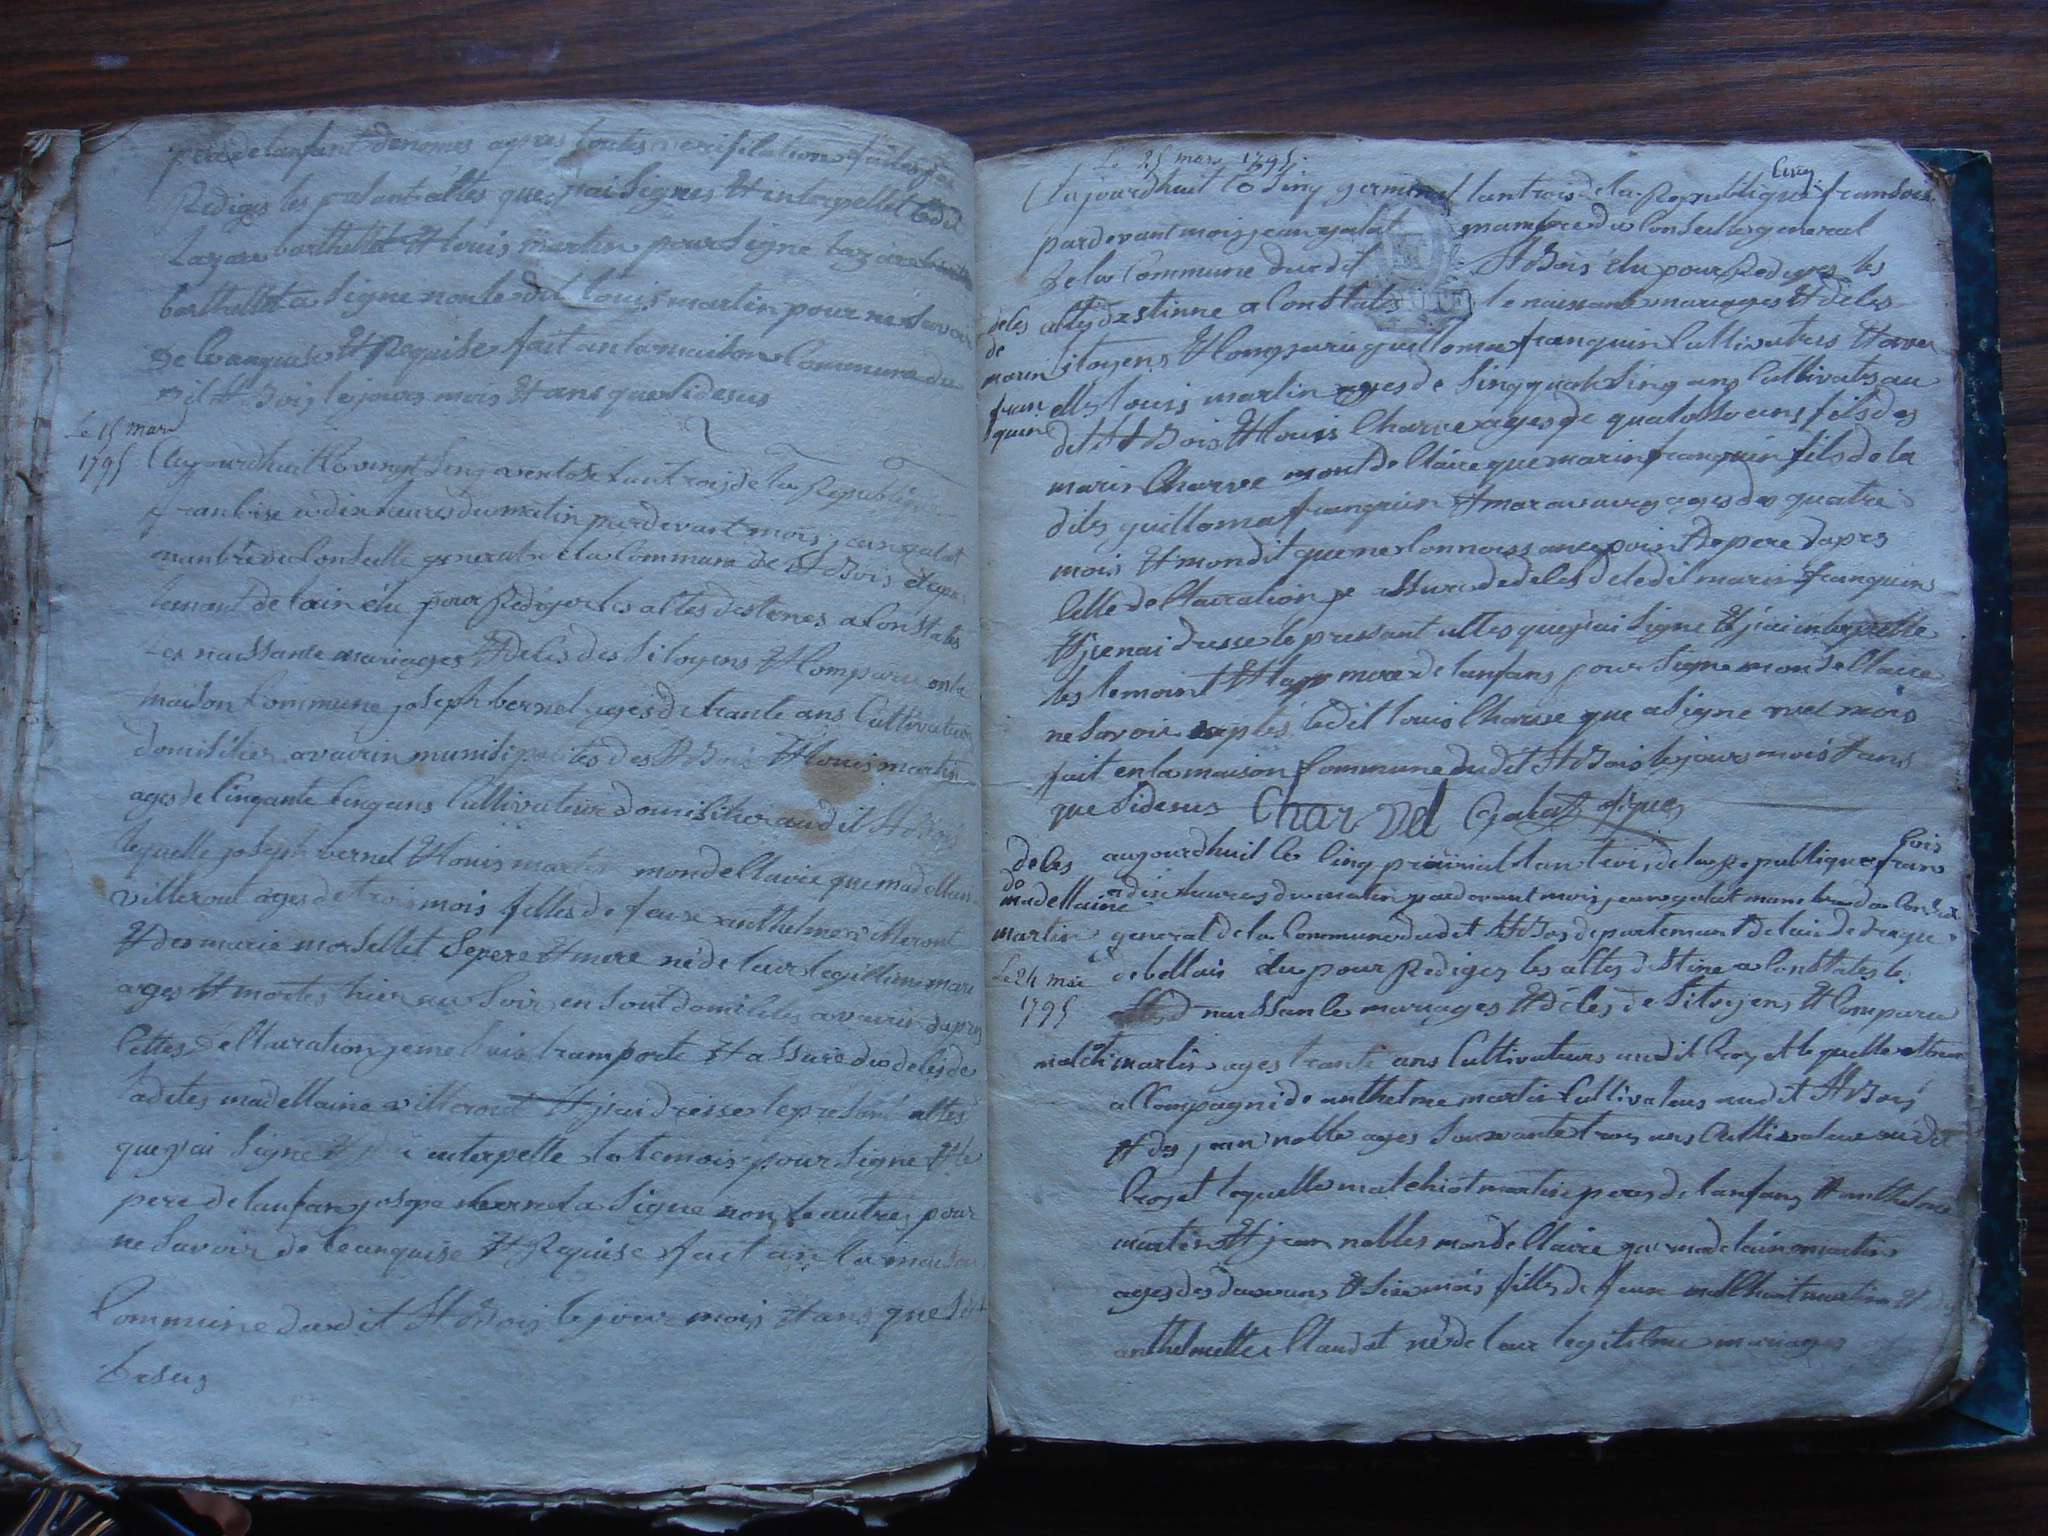 pere de lanfant denomes apres toutes verifilations faites jai
Rediges les presant altes que jai Signes & interpelles ledit
Lazare barthellet & louis martin pour Signe lazare
barthellet a Signe non ledit louis martin pour ne Savoir
de le anquise & Requise fait an la maison Commune du
dit St Bois le jours mois & ans que Sidesus
Le 15 mars
1795
Aujourdhuit le vingt Sinq ventose lant trois de la Republique
franboise a dix heures du matin par devant mois jean galat
manbre du Conseille generalle de la Commune de St Bois departe
lemant de lain élu pour Rediger les altes destines a Constates
les naissante mariages & Delés des Sitoyens & Comparu en la
maison Commune joseph bernet ages de trante ans Cultivateur
domisilier a vairin munisipalites des St Bois & louis martin
ages de Cinqante Cinq ans Cultivateur domisilier audit St Bois
lequelle joseph bernet & louis martin mon dellavie que madellene
villerout ages de trois mois filles de feuxe anthelme villerout
& des marie morsellet Sepere & mere né de leur legillime mari
ages & mortes hier au Soir en Sout domiciles a vairin dapres
Cettes dellairation je me Suis tramporté & a Ssuré du delés de
ladites madellaine villerout & jai dresse le presant altes
que jai Signe & interpelle le temois pour Signe & le
pere de lanfan josepe bernet a Signe non le autres pour
ne Savoir de le anquise & Requise fait an la maison
Commune dudit St Bois le jour mois & ans que Si
desus
Le 25 mars 1795
Cinq
Aujourdhuit le Sinq germinal lan trois de la Republique franboise
par devant mois jean galat manbre du Conseille general
de la Commune dudit St Bois élu pour Rediges les
altes destinne a Constates le naissante mariages & deles
deles
de
marin
fran
quin
Sitoyens & Comparu guilloma franquin Cultivatres & avec
elle louis martin ages de Sinqquate Sinq ans Cultivats au
dit St Bois & louis Charve ages de quatosse ans fils des
maris Charve mont dellaire que marin franquin fils de la
dites guilloma franquin & mar a vairin ages des quatre
mois & mondit que ne Connoissance point de pere dapres
Cette dellairation je assure de deles dele dit marin franquin
& je nai dresse le presant altes que jai Signe & jai interpelle
les temoint & lage mere de lanfans pour Signe mon dellaire
ne Savoir exples ledit louis Charve que a Signe avec mois
fait en la maison Commune dudit St Bois le jours mois & ans
que Sidesus Char vet Galat signes
deles
de
madellaine
martin
Le 24 mai
1795
boise
aujourdhuit le Cinq prairial lan trois de la Republique fran
a dix heures du matin par devant mois jean galat manbre du Conseil
general de la Commune dudit St Bois departemant de lain de traque
de bellais élu pour Rediges les altes destine a Constates le
naissan le mariages & déles de Sitoyens & Comparu
malchiot martin ages trante ans Cultivateurs audit Croyet lequelle etant
a Compagni de anthelme martin Cultivateurs audit St Bois
& des jean noble ages Soixante trois ans Cultivateur audit
Croyet lequelle malchiot martin peres de lanfans & anthelme
martin & jean nobles mon dellaire que madelaine martin
ages des deux ans & Sixe mois filles de feuxe malchiot martin & des
anthelmette Claudat né de leur legitilme mariages